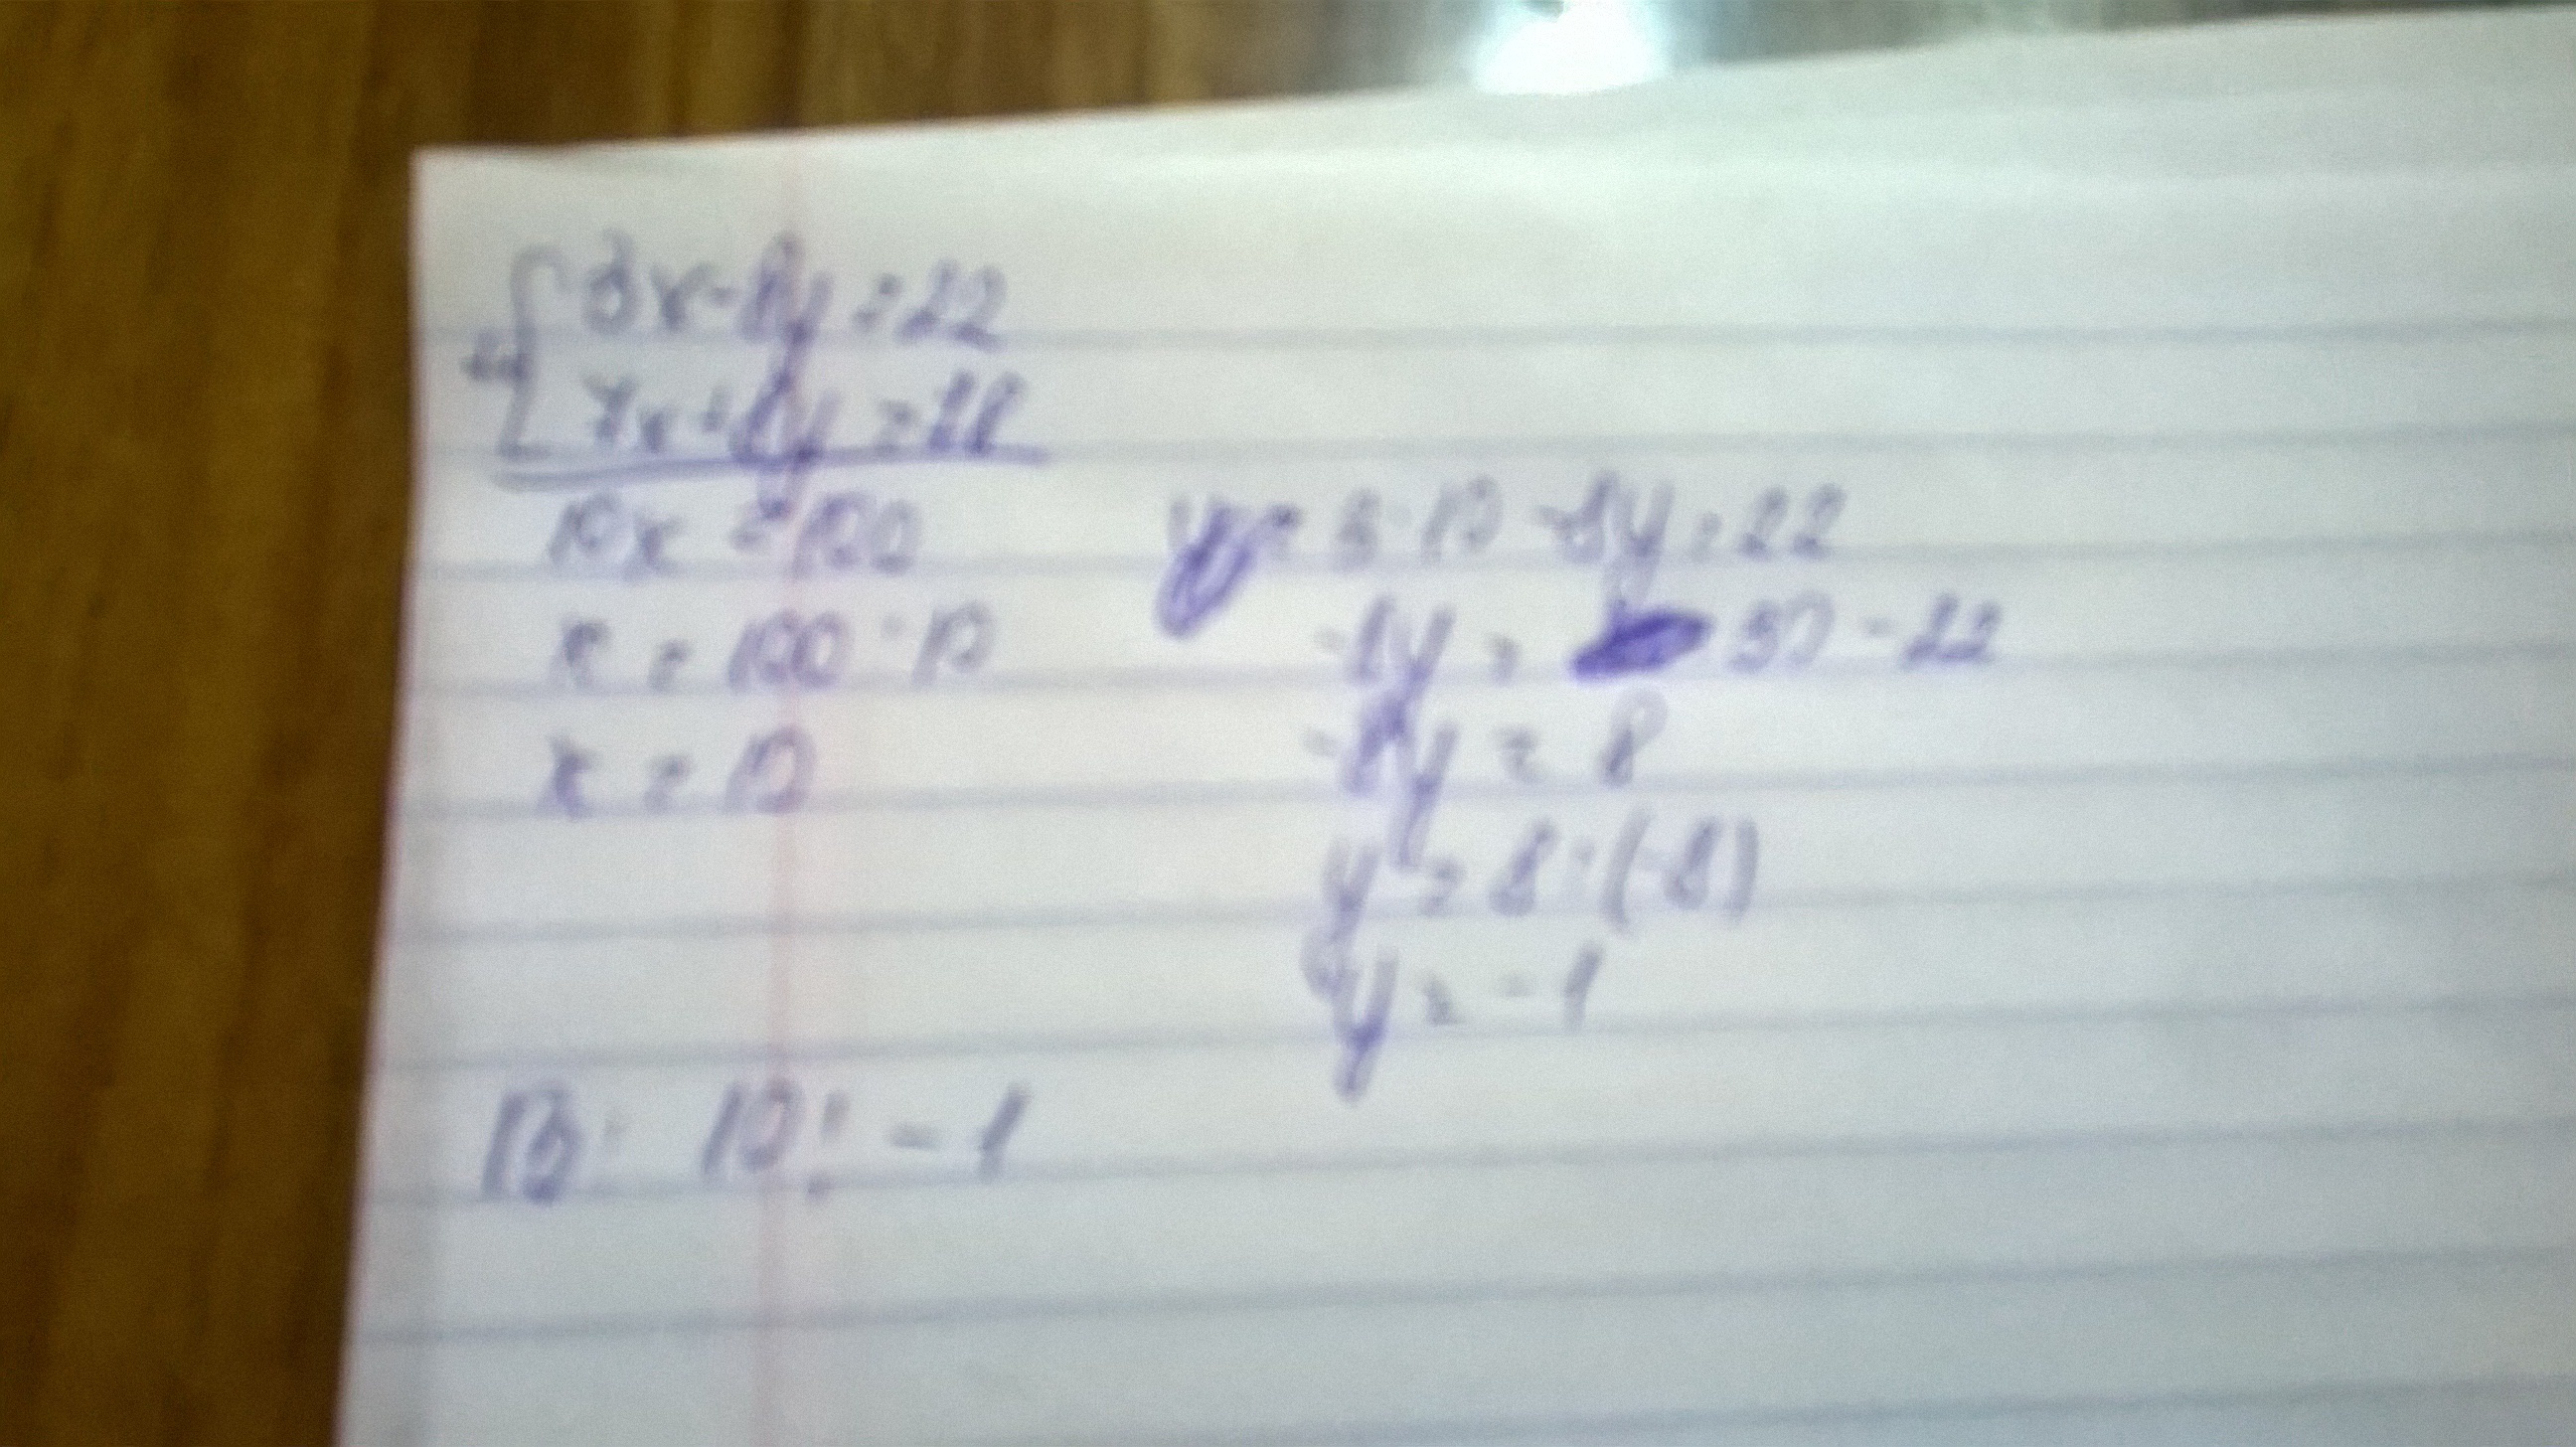 3x-8y=22
+
7x+8y=78
10x=100
x=100:10
x=10
3·10-8y=22
-8y=30-22
-8y=8
y=8:(-8)
y=-1
В: 10; -1